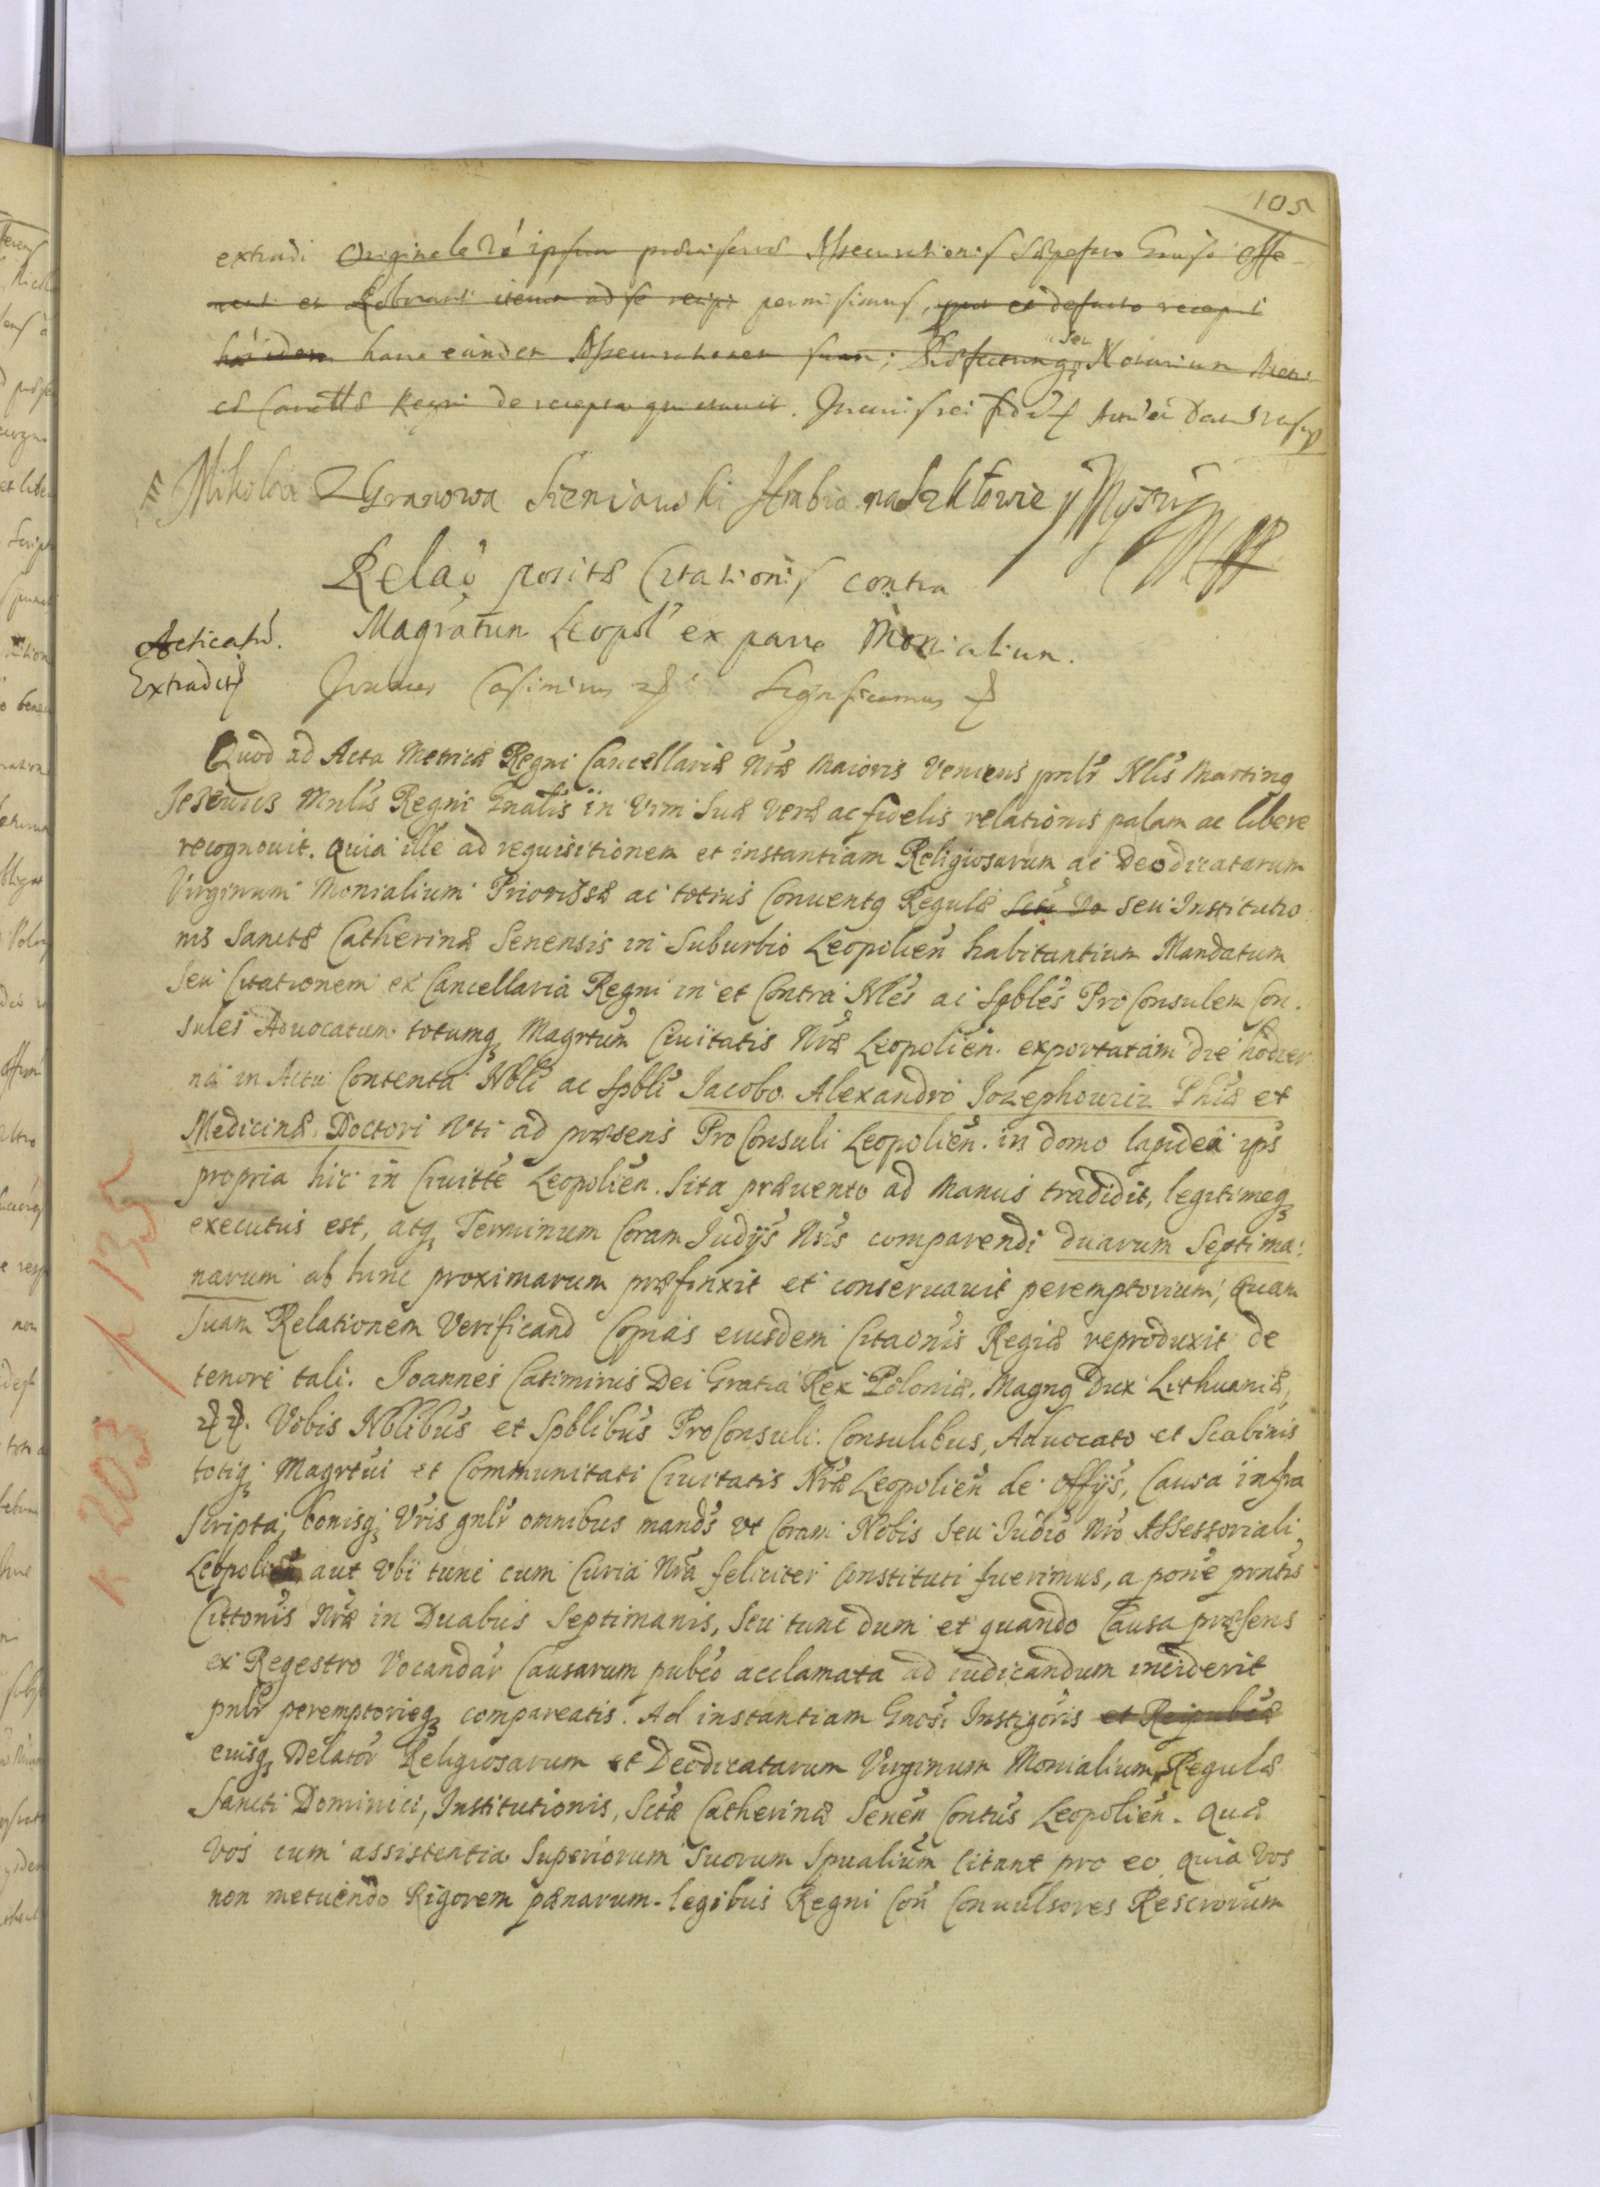 105
extradi Originale vo ipsum
permisimus, et de facto recepit
hanc eandem
Regni de recepta
Mikołai Z Granowa Sieniawski
Relaō positæ Citationis contra
Magratum Leopol' ex parte Monialium.
Acticatū.
Extraditū
Joannes Casimirus Significamus
Quod ad Acta Metricæ Regni Cancellariæ Nræ Maioris Veniens pnlr Nlis Martinq
Mnlis Regni Gnalis in Vim Suæ Veræ ac fidelis relationis palam ac libere
recognouit. Quia ille ad requisitionem et instantiam Religiosarum ac Deodicatarum
Virginum Monialium Priorissæ ac totius Conuentq Regulæ seu Institutio
nis Sanctæ Catherinæ Senensis in Suburbio Leopolien habitantium Mandatum
seu Citationem ex Cancellaria Regni in et Contra Nles ac Spbles ProConsulem Con
sules Aduocatum totumq Magrtum Ciuitatis Nræ Leopolien. exportatam die hodier
na in Actu Contenta Nbli ac Spbli Jacobo Alexandro Jozephowiz Phiæ et
Medicinæ Doctori Vti ad præsens ProConsuli Leopolien. in domo lapidea ips
propria hic in Ciuitte Leopolien. Sita præuento ad Manus tradidit, legitimeq
executus est, atq Terminum Coram Judijs Nris comparendi duarum Septima
narum ab hinc proximarum præfinxit et conseruauit peremptorium, Quam
Suam Relationem Verificand Copias eiusdem Citaonis Regiæ reproduxit de
tenore tali. Joannes Casimirus Dei Gratia Rex Poloniæ, Magnq Dux Lithuaniæ,
Vobis Nblibus et Spblibus ProConsuli. Consulibus, Aduocato et Scabinis
totiq Magrtui et Communitati Ciuitatis Nræ Leopolien de offijs, Causa infra
scripta, bonisq Vris gnlr omnibus mands vt Coram Nobis seu Judio Nro Assessoriali
Leopolien aut Vbi tunc cum Curia Nra feliciter constituti fuerimus, a pone pntis
Cittonis Nræ in Duabus Septimanis, Seu tunc dum et quando Causa præsens
ex Regestro Vocandar Causarum pubco acclamata ad iudicandum inciderit
pnlr peremptorieq compareatis. Ad instantiam Gnosi Instigoris et Reipubcæ
eiusq Delator Religiosarum et Deodicatarum Virginum Monialium Regulæ
Sancti Dominici, Institutionis, Sctæ Catherinæ Senen Contus Leopolien. Quæ
Vos cum assistentia Superiorum Suorum Spualium citant pro eo quia Vos
non metuendo Rigorem pænarum legibus Regni Con Conuulsores Rescrorum
k 203 p 135